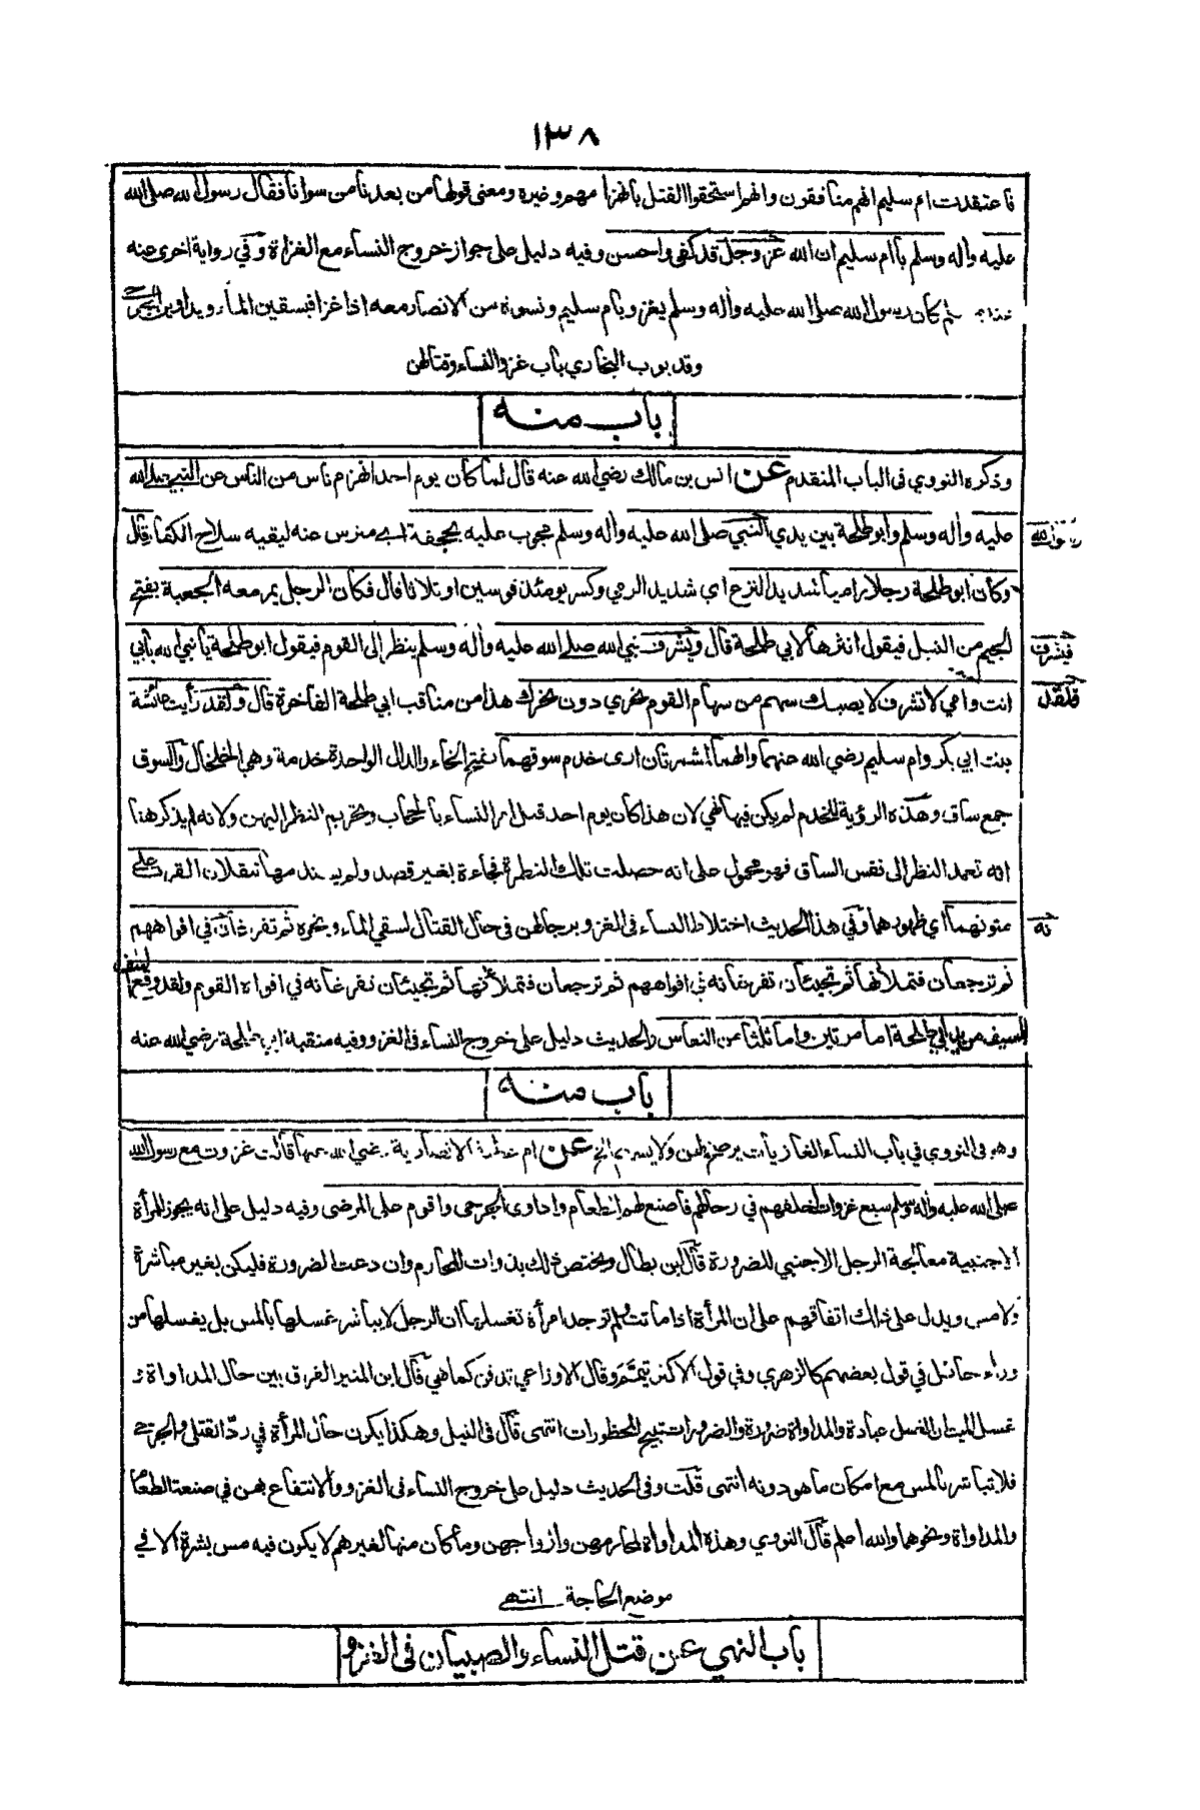 ١٣٨
فاعتقدت ام سليم انهم منافقون وانهم استحقوا القتل بانهزامهم وغيره ومعنى قولها من بعدنا من سوانا فقال رسول الله صلى الله
عليه واله وسلم ياام سليم ان الله عز وجل قد كفى واحسن وفيه دليل على جواز خروج النساء مع الغزاة وفي رواية اخرى عنه
كان رسول الله صلى الله عليه واله وسلم يغزو بام سليم ونسوة من الانصار معه اذا غزا فيسقين الماء ويداوين الجرحى
وقد بوب البخاري باب غزو النساء وقتالهن
باب منه
وذكره النووي فى الباب المتقدم عن انس بن مالك رضي الله عنه قال لما كان يوم احد انهزم ناس من الناس عن النبي صلى الله
عليه واله وسلم وابو طلحة بين يدي النبي صلى الله عليه واله وسلم مجوب عليه بحجفة اي مترس عنه ليقيه سلاح الكفار قال
وكان ابو طلحة رجلا راميا شديد النزع اي شديد الرمي وكسر يومئذ قوسين او ثلاثا قال فكان الرجل يمر معه الجعبة بفتح
الجيم من النبل فيقول انثرها لابي طلحة قال ويشرف نبي الله صلى الله عليه واله وسلم ينظر إلى القوم فيقول ابو طلحة يا نبي الله بابي
فيشرف
انت وامي لا تشرف لا يصبك سهم من سهام القوم نحري دون نحرك هذا من مناقب ابي طلحة الفاخرة قال ولقد رأيت عائشة
فلقد
بنت ابي بكر وام سليم رضي الله عنهما وانهما لمشمرتان ارى خدم سوقهما بفتح الخاء والدال الواحدة خدمة وهي الخلخال والسوق
جمع ساق وهذه الرؤية للخدم لم يكن فيها نهي لان هذا كان يوم احد قبل امر النساء بالحجاب وتحريم النظر اليهن ولانه لم يذكر هنا
انه تعمد النظر الى نفس الساق فهو محمول على انه حصلت تلك النظرة فجاءة بغير قصد ولم يستدمها تنقلان القرب على
متونهما اي ظهورهما وفي هذا الحديث اختلاط النساء فى الغزو برجالهن فى حال القتال لسقي الماء ونحوه ثم تفرغان في افواههم
نه
ثم ترجعان فتملأنها ثم تجيئان تفرغانه في افواههم ثم ترجعان فتملأنها ثم تجيئان تفرغانه في افواه القوم ولقد وقع
السيف من يدي ابي طلحة اما مرتين واما ثلثا من النعاس والحديث دليل على خروج النساء فى الغزو وفيه منقبة ابي طلحة رضي الله عنه
باب منه
وهو فى النووي في باب النساء الغازيات يرضخ لهن ولا يسهم الخ عن ام عطية الانصارية رضي الله عنها قالت غزوت مع رسول الله
صلى الله عليه واله وسلم سبع غزوات اخلفهم في رحالهم فاصنع لهم الطعام واداوى الجرحى واقوم على المرضى وفيه دليل على انه يجوز للمرأة
الاجنبية معالجة الرجل الاجنبي للضرورة قال ابن بطال ويختص ذلك بذوات المحارم وان دعت الضرورة فليكن بغير مباشرة
ولا مس ويدل على ذلك اتفاقهم على ان المرأة اذا ماتت ولم توجد امرأة تغسلها ان الرجل لا يباشر غسلها بالمس بل يغسلها من
وراء حائل في قول بعضهم كالزهري وفي قول الاكثر تيمم وقال الاوزاعي تدفن كما هي قال ابن المنير الفرق بين حال المداواة و
غسل الميت ان الغسل عبادة والمداواة ضرورة والضرورات تبيح المحظورات انتهى قال فى النيل وهكذا يكون حال المرأة في رد القتلى والجرحى
فلا تباشر بالمس مع امكان ما هو دونه انتهى قلت وفى الحديث دليل على خروج النساء فى الغزو والانتفاع بهن في صنعة الطعام
والمداواة ونحوهما والله اعلم قال النووي وهذه المداواة لمحارمهن وازواجهن وما كان منها لغيرهم لا يكون فيه مس بشرة الا في
موضع الحاجة انتهى
باب النهي عن قتل النساء والصبيان فى الغزو